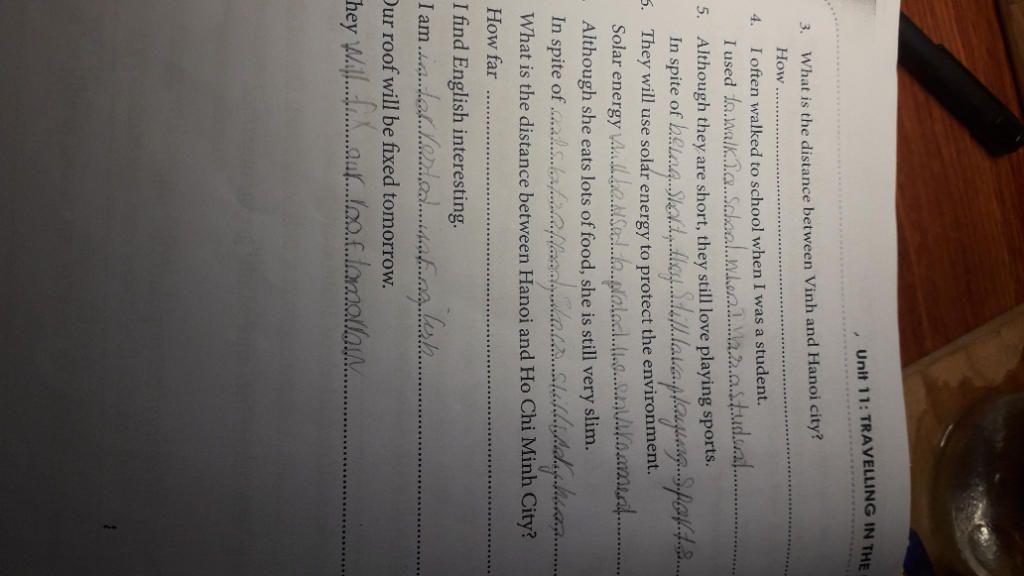 Unit 11: TRAVELLING IN THE
3. What is the distance between Vinh and Hanoi city?
How
4. I often walked to school when I was a student.
I used to walk to school when I was a student
5. Although they are short, they still love playing sports.
In spite of being short, they still love playing sports
6. They will use solar energy to protect the environment.
Solar energy will be used to protect the environment
Although she eats lots of food, she is still very slim.
In spite of still very slim
What is the distance between Hanoi and Ho Chi Minh City?
How far
I find English interesting.
I am
Our roof will be fixed tomorrow.
They will fix our roof tomorrow